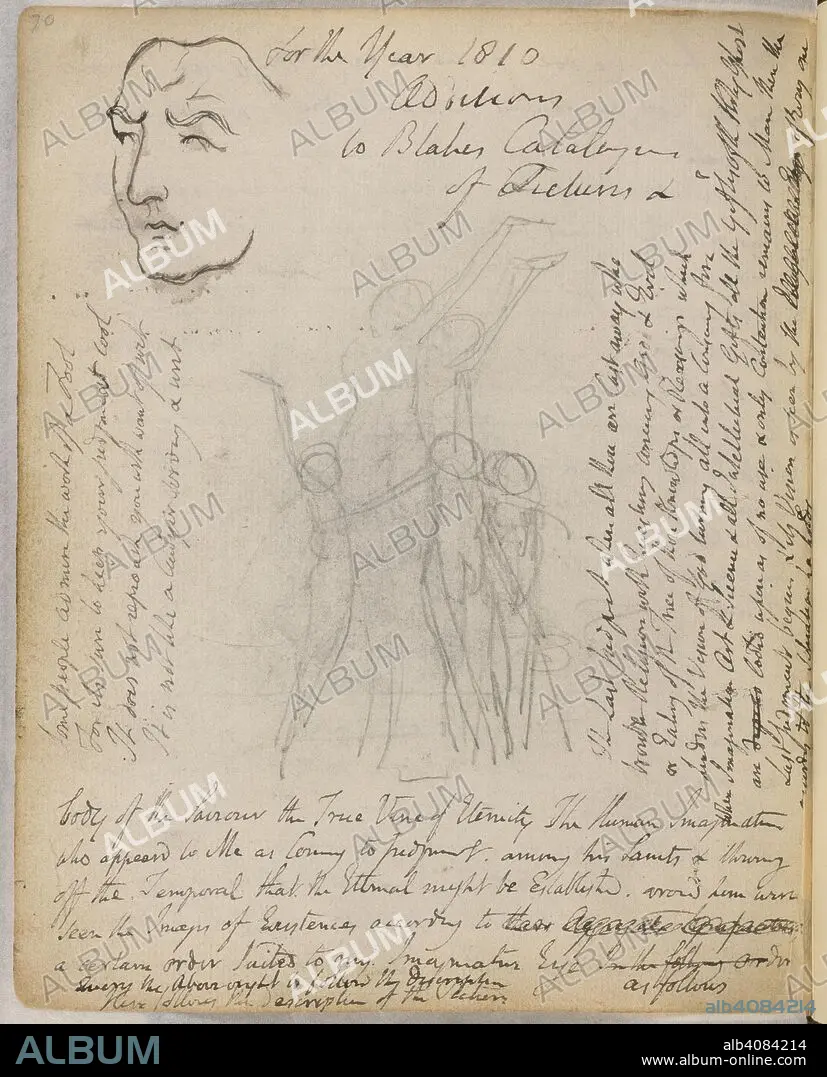 70
For the Year 1810
Additions
to Blakes Catalogue
of Pictures &
The Last Judgment when all those are Cast away who
trouble Religion with Questions concerning Good & Evil
or Eating of the Tree of those Knowledges or Reasonings which
hinder the Vision of God turning all into a Consuming fire
When Imagination Art & Science & all Intellectual Gifts all the Gifts of the Holy Ghost
are lookd upon as of no use & only Contention remains to Man then the
Last Judgment begins & its Vision is seen by the Every one
according to the situation he holds
Some people admire the work of a Fool
For its sure to keep your judgment cool
It does not reproach you with want of wit
It is not like a lawyer serving a writ
body of the Saviour the True Vine of Eternity The Human Imagination
who appeard to Me as Coming to Judgment. among his Saints & throwing
off the Temporal that the Eternal might be Establishd. around him were
seen the Images of Existences according to
a certain order Suited to my Imaginative Eye In the following order
as follows
Query the Above ought to follow the description
Here follows the description of the Picture
ALBUM
alb4084214
ALBUM
alb4084214
www.album-online.com